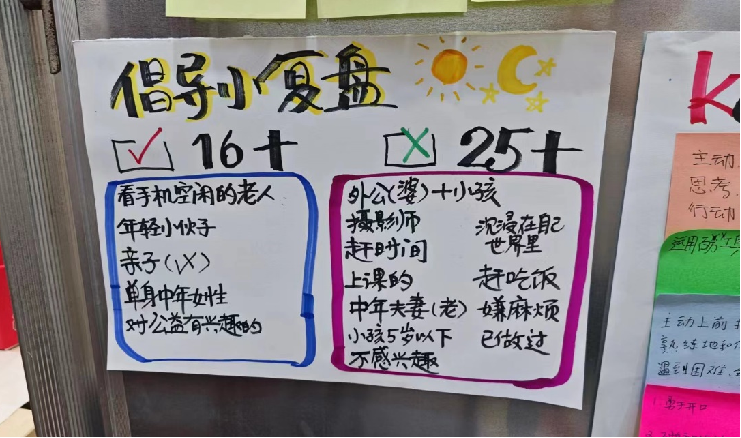 倡导小复盘
16+
25+
看手机空闲的老人
年轻小伙子
亲子(√×)
单身中年女性
对公益有兴趣的
外公(婆)+小孩
摄影师
赶时间
上课的
中年夫妻(老)
小孩5岁以下
不感兴趣
沉浸在自己
世界里
赶吃饭
嫌麻烦
已做过
K
主动
思考、
行动
主动上前
熟练地和
遇到困难、
1.勇于开口